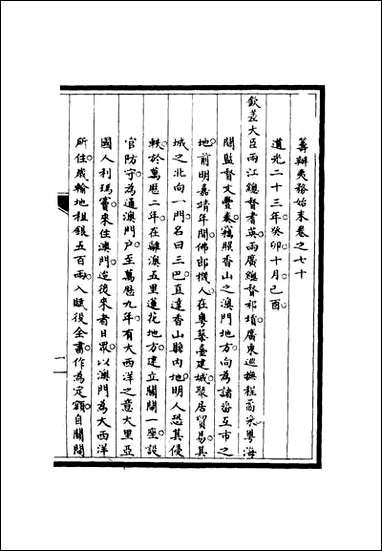 籌辦夷務始末卷之七十
道光二十三年癸卯十月己酉
欽差大臣兩江總督耆英兩廣總督祁𡎴廣東巡撫程矞采粵海
關監督文豐奏竊照香山之澳門地方向為諸番互市之
地前明嘉靖年間佛郎機人在粵築臺建城聚居貿易其
城之北向一門名曰三巴直達香山縣內地明人恐其侵
軼於萬曆二年在離澳五里蓮花地方建立關閘一座設
官防守為通澳門戶至萬曆九年有大西洋之意大里亞
國人利瑪竇來住澳門迄後來者日眾以澳門為大西洋
所住歲輸地租銀五百兩入賦後全書作為定額自關閘
一